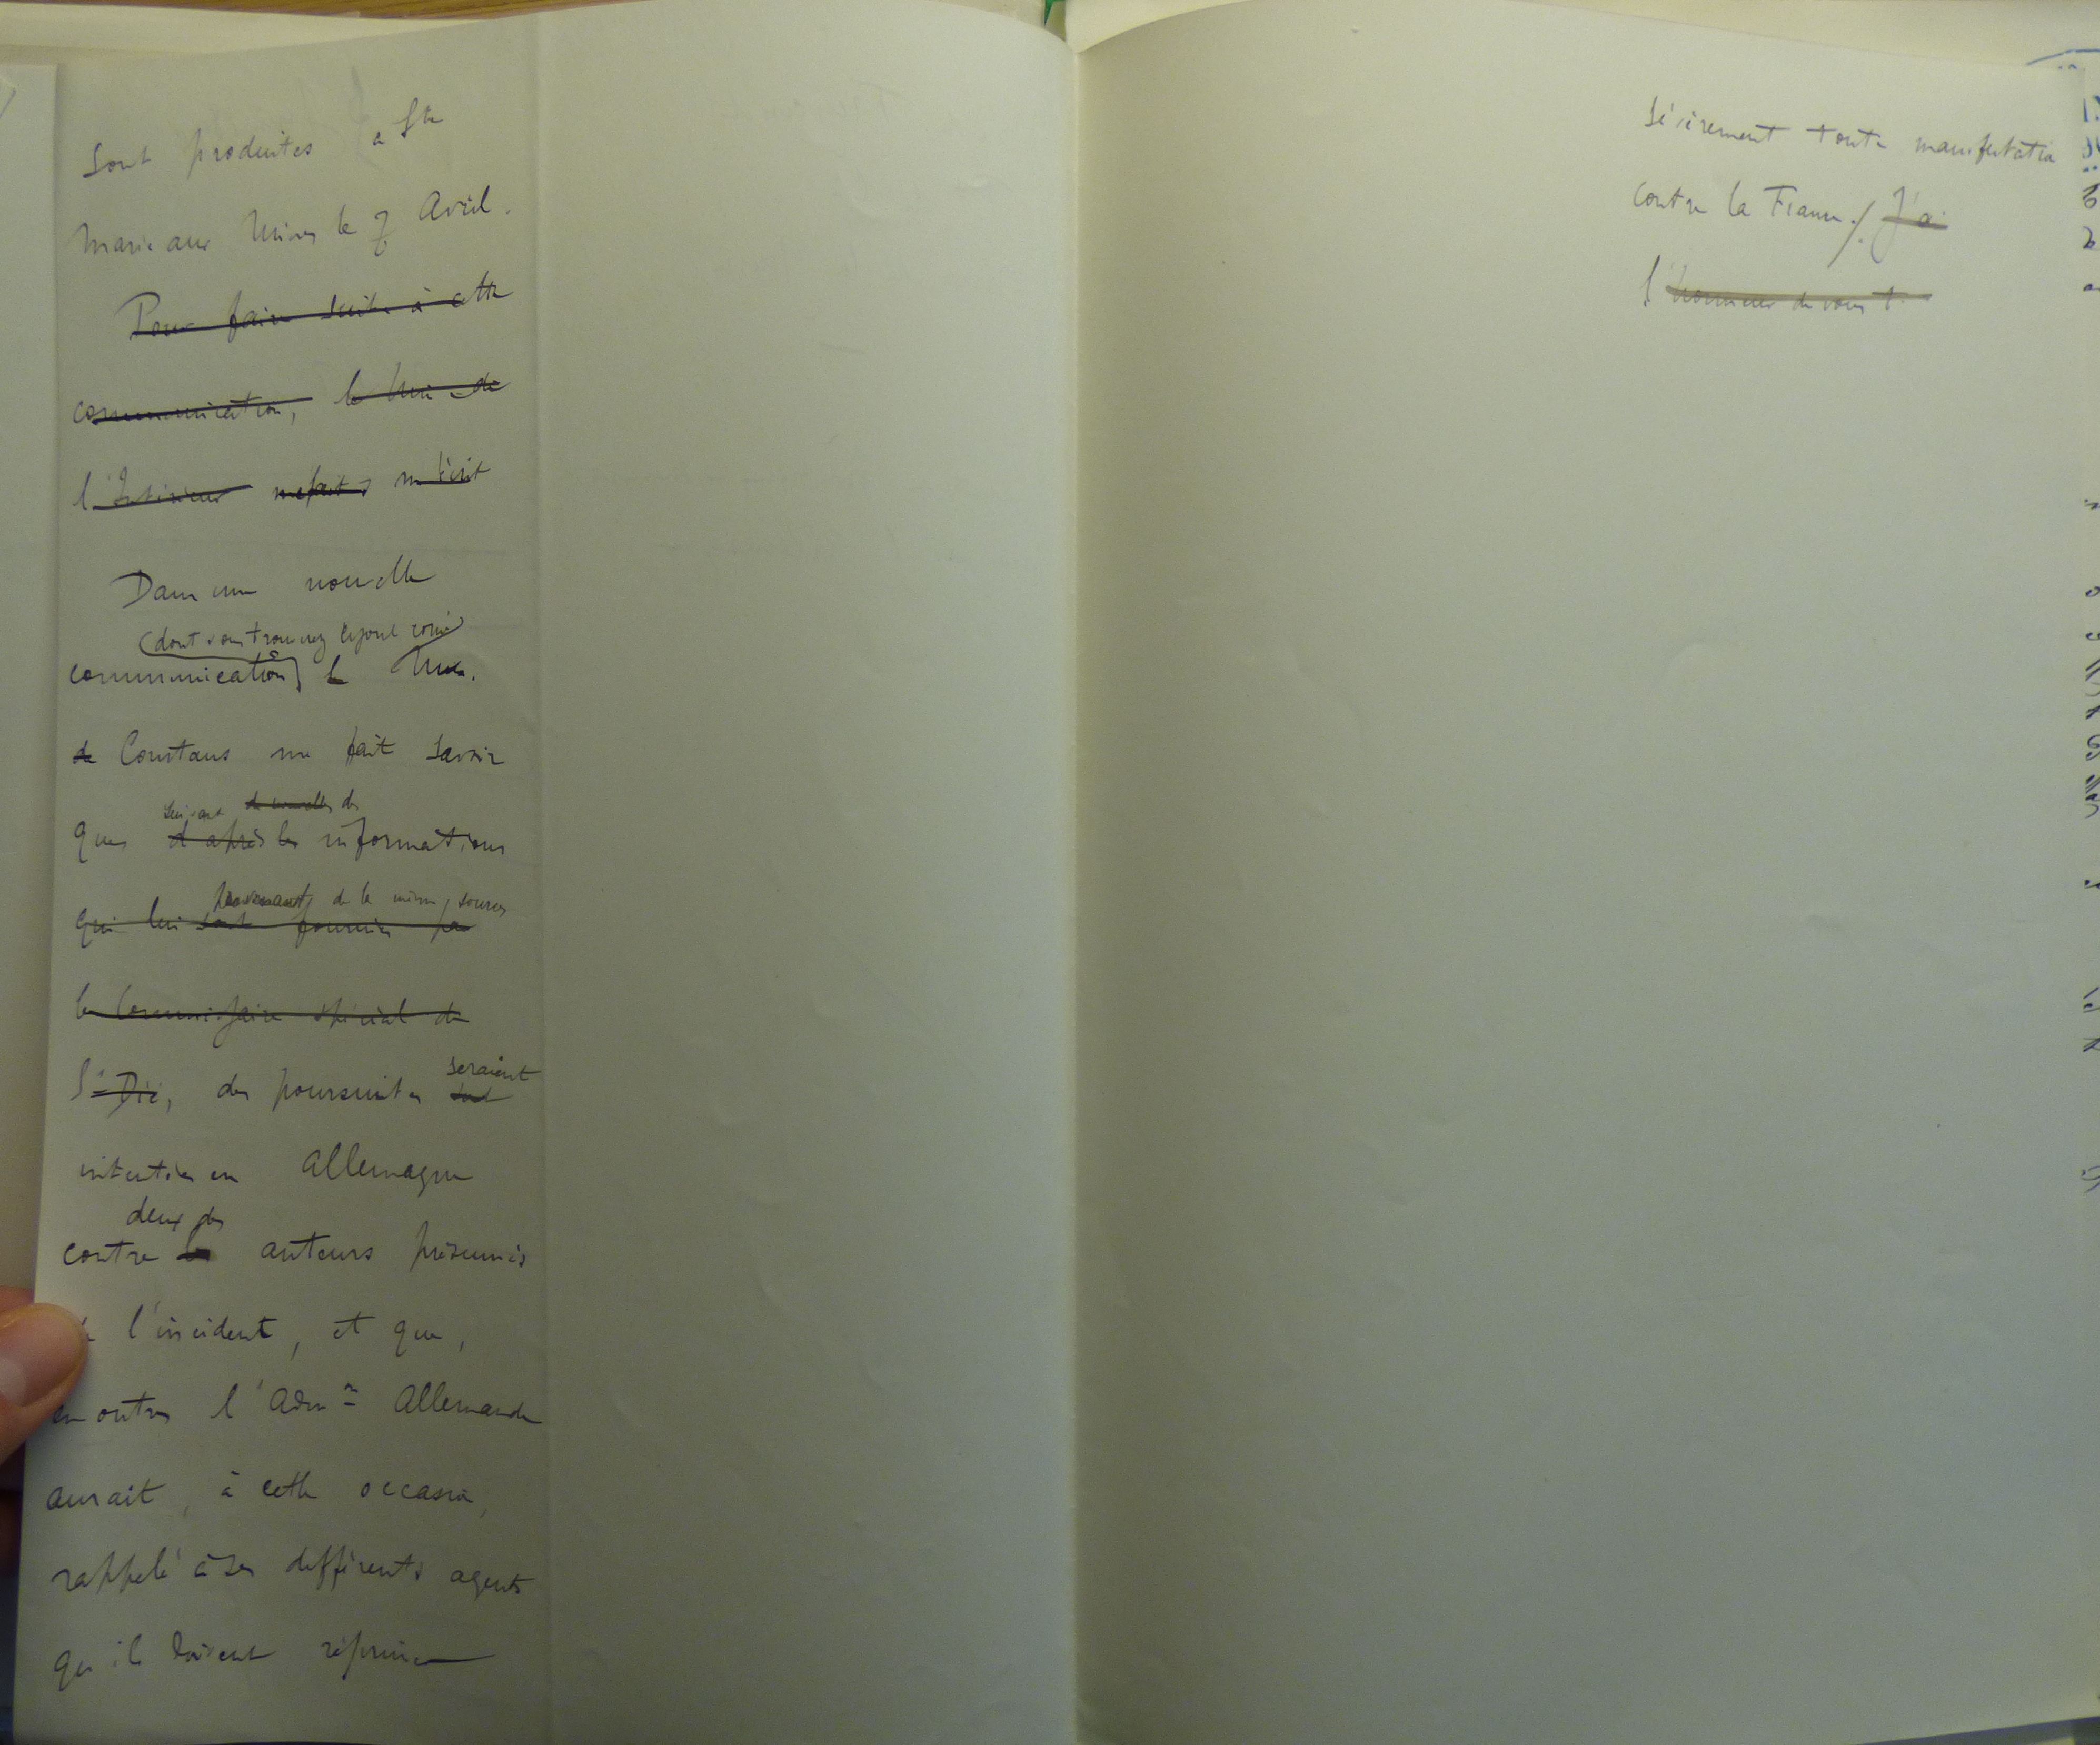 sont produites à Ste
Marie aux Mines le 7 Avril.
Pour faire suite à cette
communication, le Min. de
l'Intérieur me fait m'écrit
Dans une nouvelle
(dont vous trouverez ci-joint copie)
communication, le Min.
de Constans me fait savoir
suivant de nouvelles des
que d'après les informations
provenant de la même source,
qui lui sont fournies par
le Commissaire spécial de
St Dié, des poursuites seraient
intentées en Allemagne
deux des
contre les auteurs présumés
de l'incident, et que,
en outre, l'Admon Allemande
aurait, à cette occasion,
rappelé à ses différents agents
qu'ils doivent réprimer
sévèrement toute manifestation
contre la France./. J'ai
l'honneur de vous